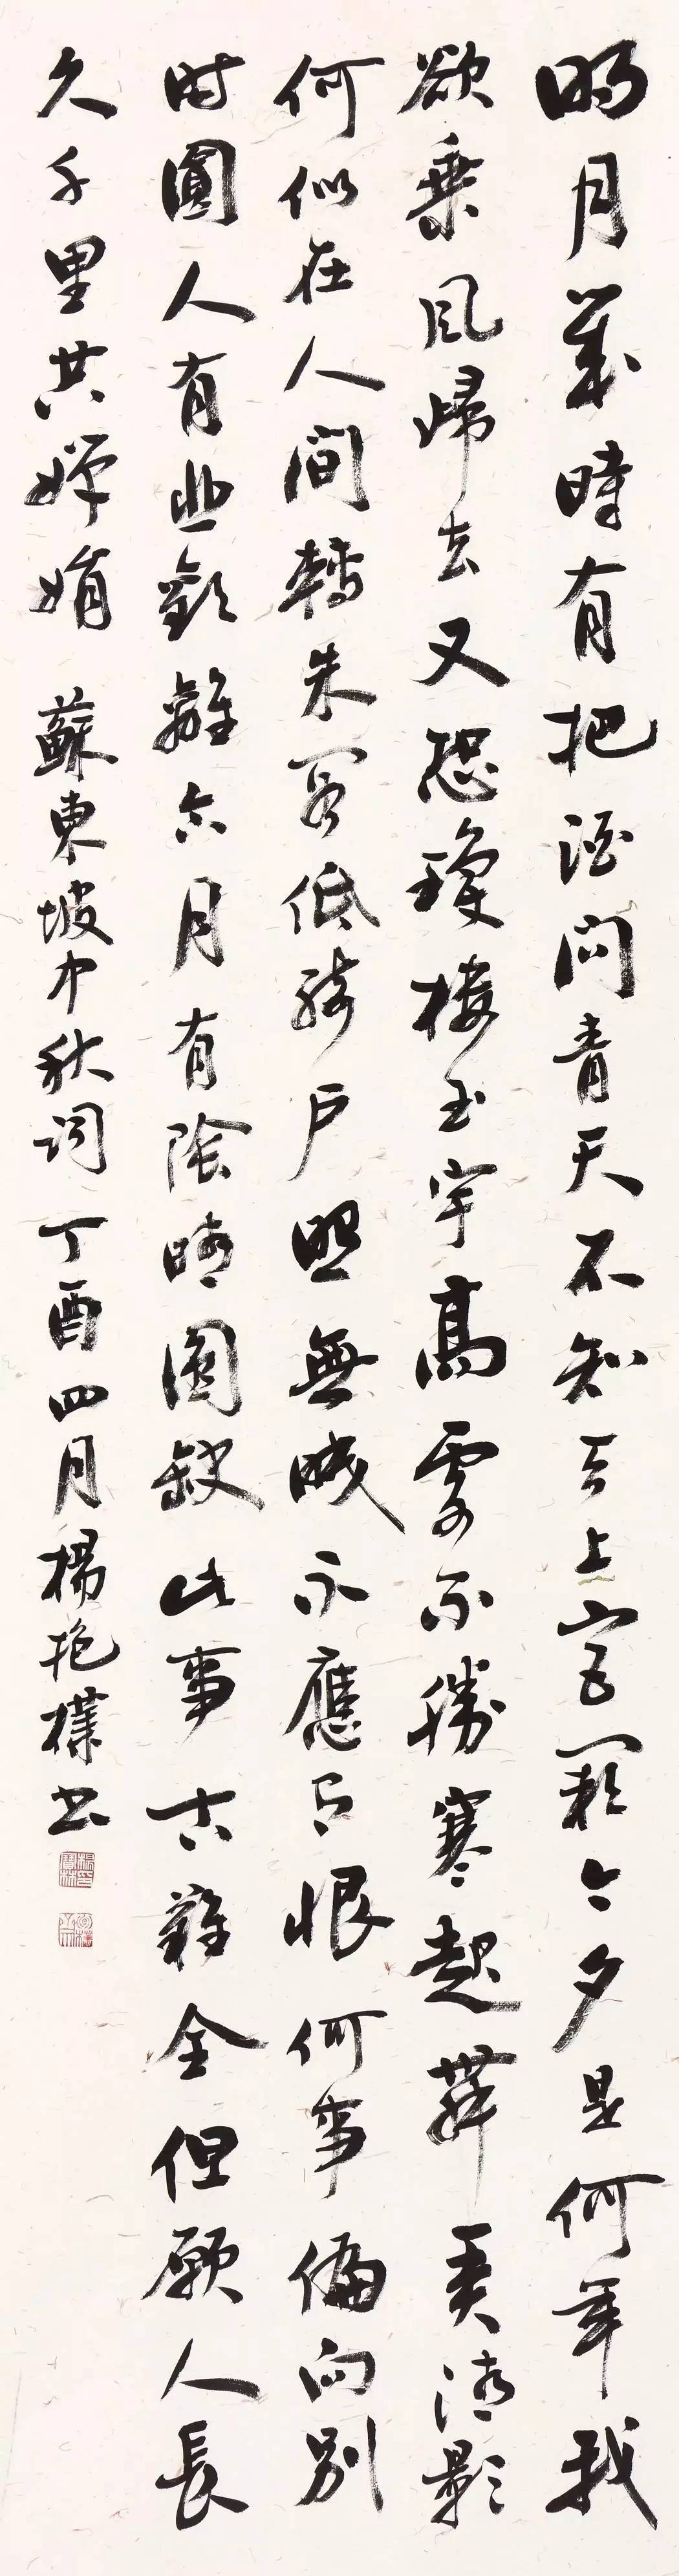 明月幾時有把酒問青天不知天上宮闕今夕是何年我
欲乘風歸去又恐瓊樓玉宇高處不勝寒起舞弄清影
何似在人間轉朱閣低綺戶照無眠不應有恨何事偏向別
時圓人有悲歡離合月有陰晴圓缺此事古難全但願人長
久千里共嬋娟 蘇東坡中秋詞 丁酉四月楊抱樸書